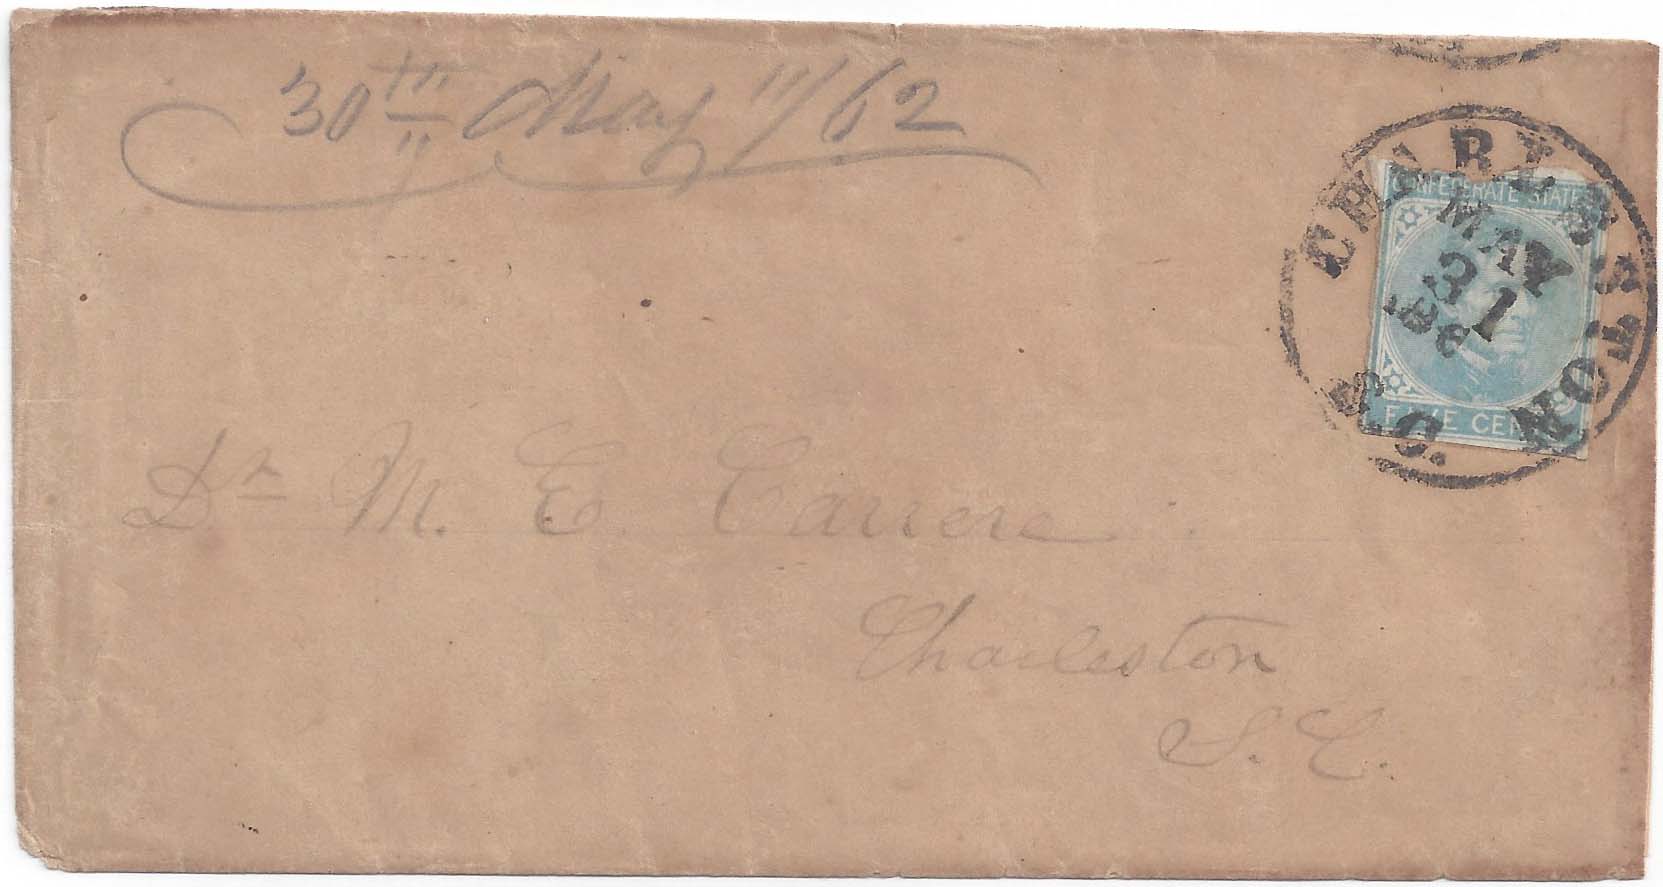 30th May "/62
CHARLESTON
S.C.
MAY
31
186
CONFEDERATE STATES
FIVE CENTS
Dr M. E. Carrere
Charleston
S. C.